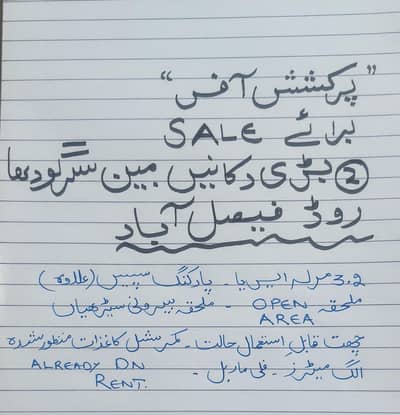 "پرکشش آفر"
برائے SALE
② بڑی دکانیں مین سرگودھا
روڈ فیصل آباد
3.2 مرلہ ایریا - پارکنگ سپیس (علاوہ)
ملحقہ OPEN - ملحقہ بیرونی سیڑھیاں
AREA
چھت قابلِ استعمال حالت - کمرشل کاغذات منظور شدہ
الگ میٹرز - فلی ماربل - ALREADY ON
RENT.